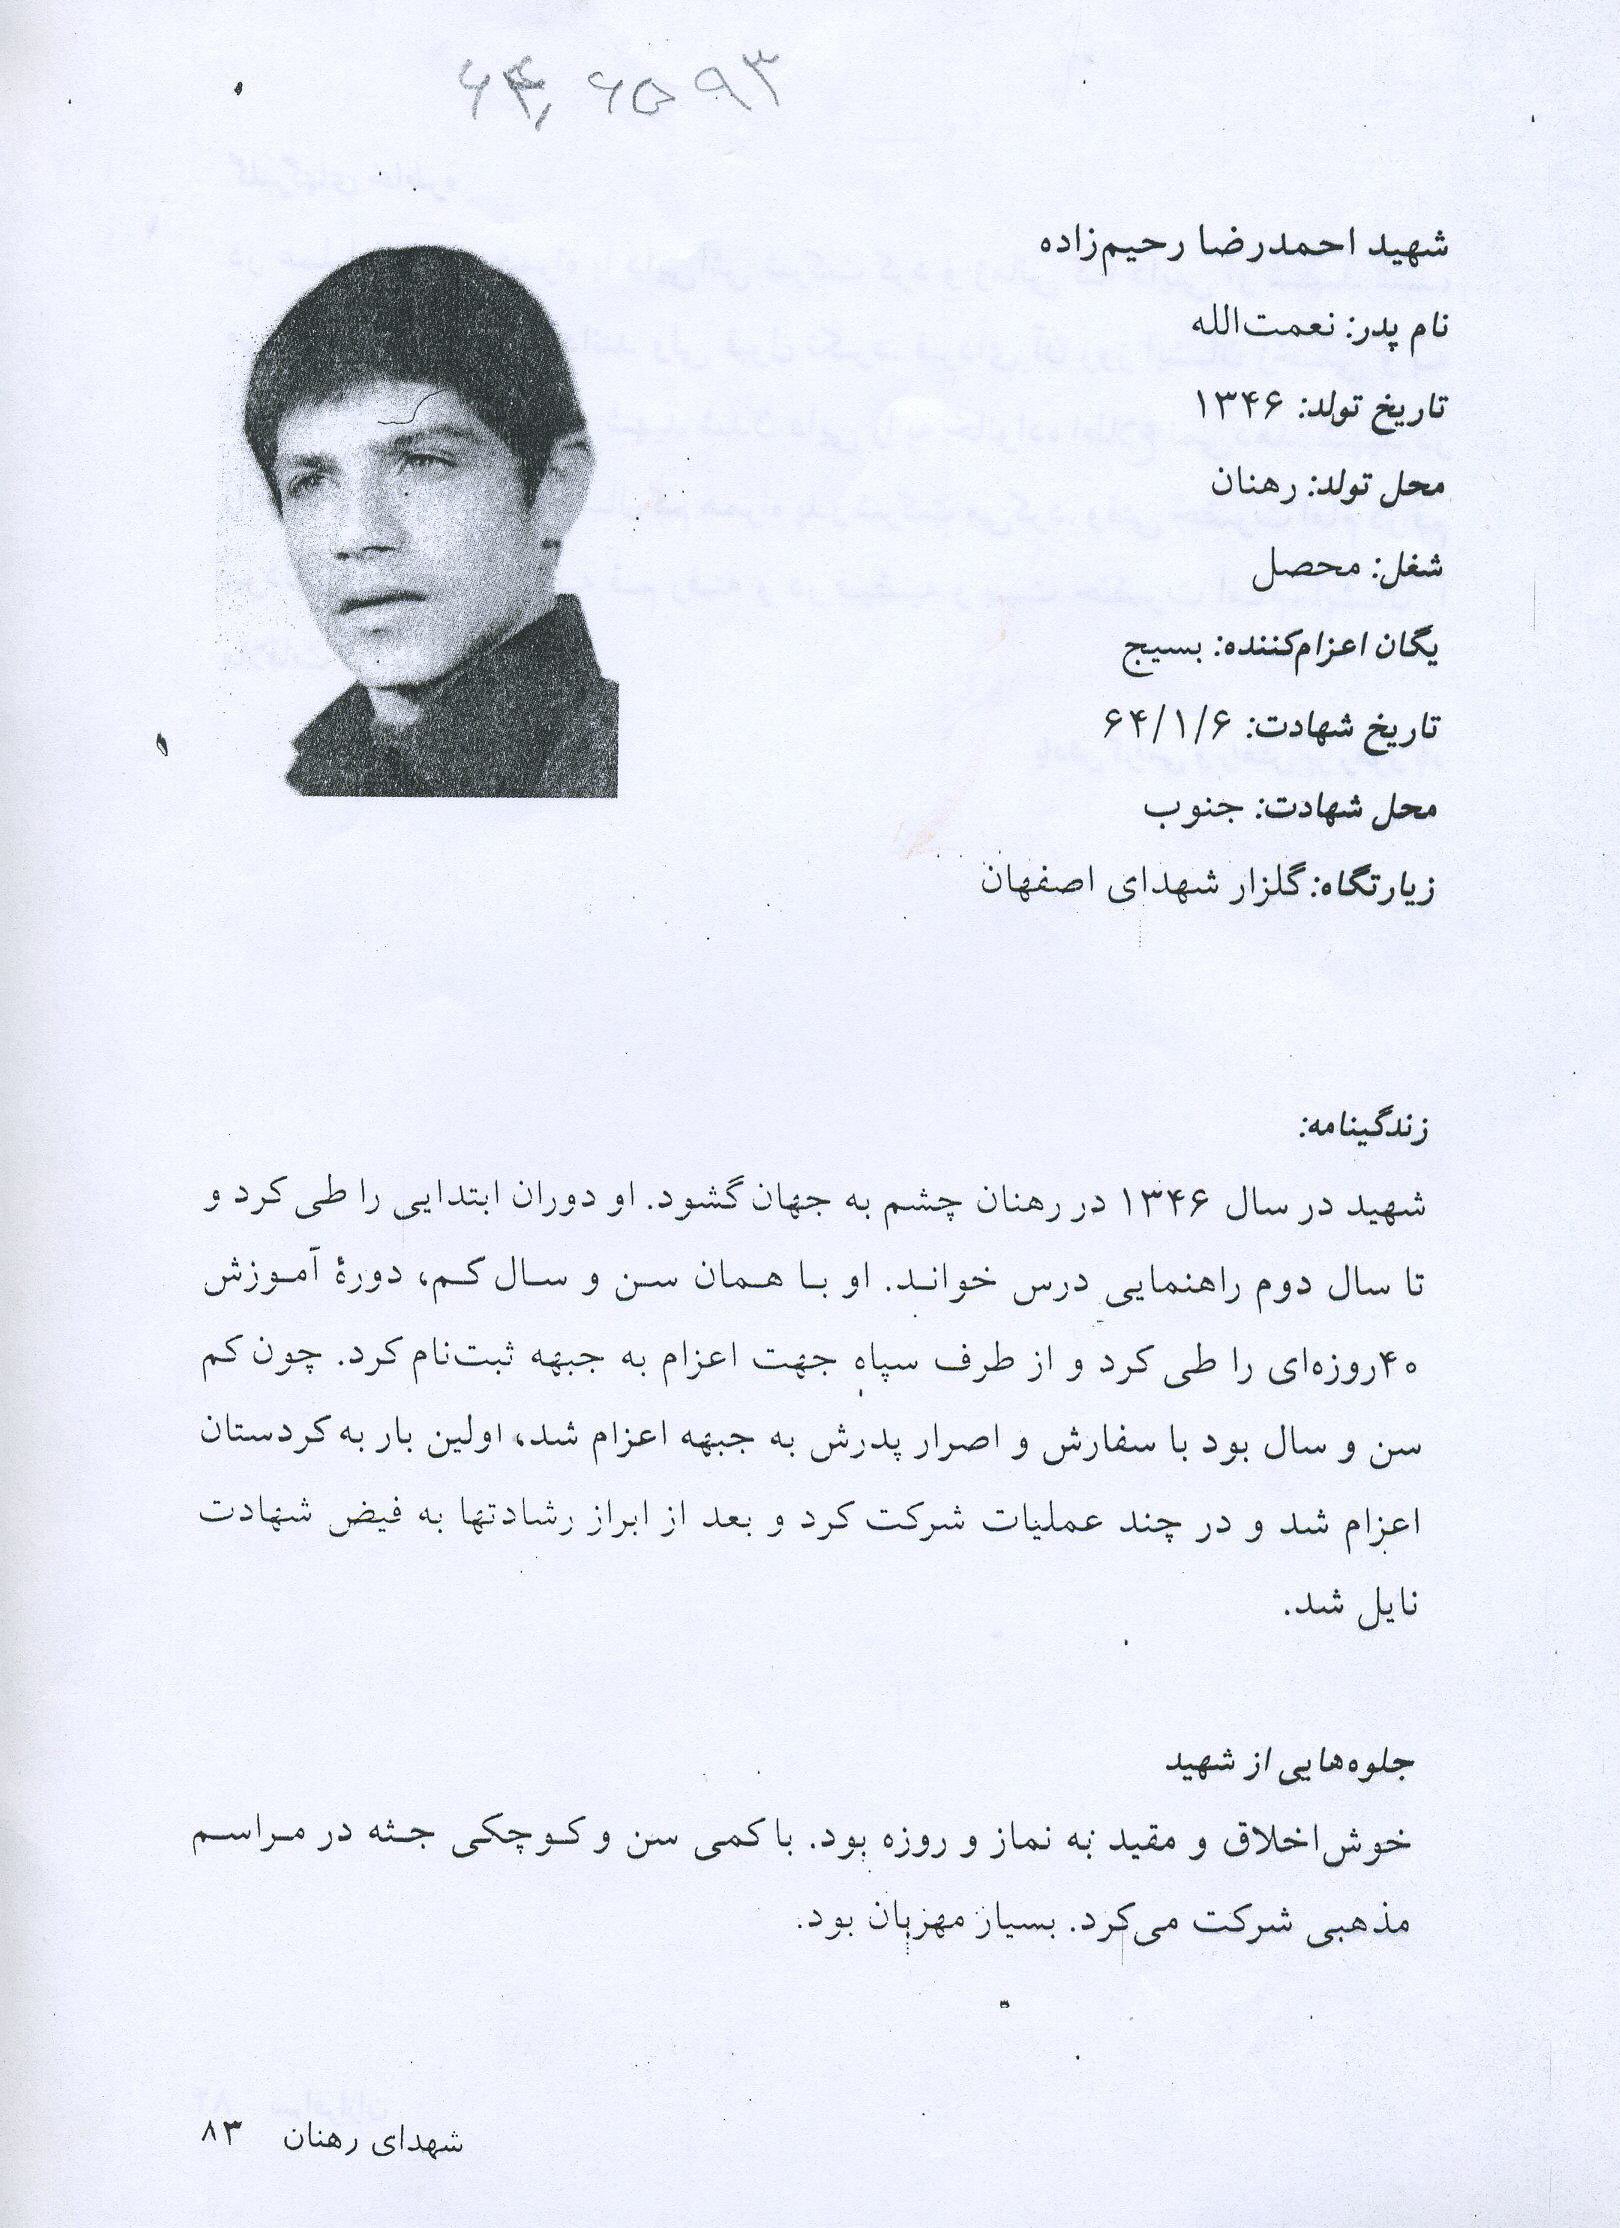 شهید احمدرضا رحیم‌زاده
نام پدر: نعمت‌الله
تاریخ تولد: ۱۳۴۶
محل تولد: رهنان
شغل: محصل
یگان اعزام‌کننده: بسیج
تاریخ شهادت: ۶۴/۱/۶
محل شهادت: جنوب
زیارتگاه: گلزار شهدای اصفهان
زندگینامه:
شهید در سال ۱۳۴۶ در رهنان چشم به جهان گشود. او دوران ابتدایی را طی کرد و
تا سال دوم راهنمایی درس خواند. او با همان سن و سال کم، دورۀ آموزش
۴۰روزه‌ای را طی کرد و از طرف سپاه جهت اعزام به جبهه ثبت‌نام کرد. چون کم
سن و سال بود با سفارش و اصرار پدرش به جبهه اعزام شد، اولین بار به کردستان
اعزام شد و در چند عملیات شرکت کرد و بعد از ابراز رشادتها به فیض شهادت
نایل شد.
جلوه‌هایی از شهید
خوش‌اخلاق و مقید به نماز و روزه بود. با کمی سن و کوچکی جثه در مراسم
مذهبی شرکت می‌کرد. بسیار مهربان بود.
شهدای رهنان ۸۳